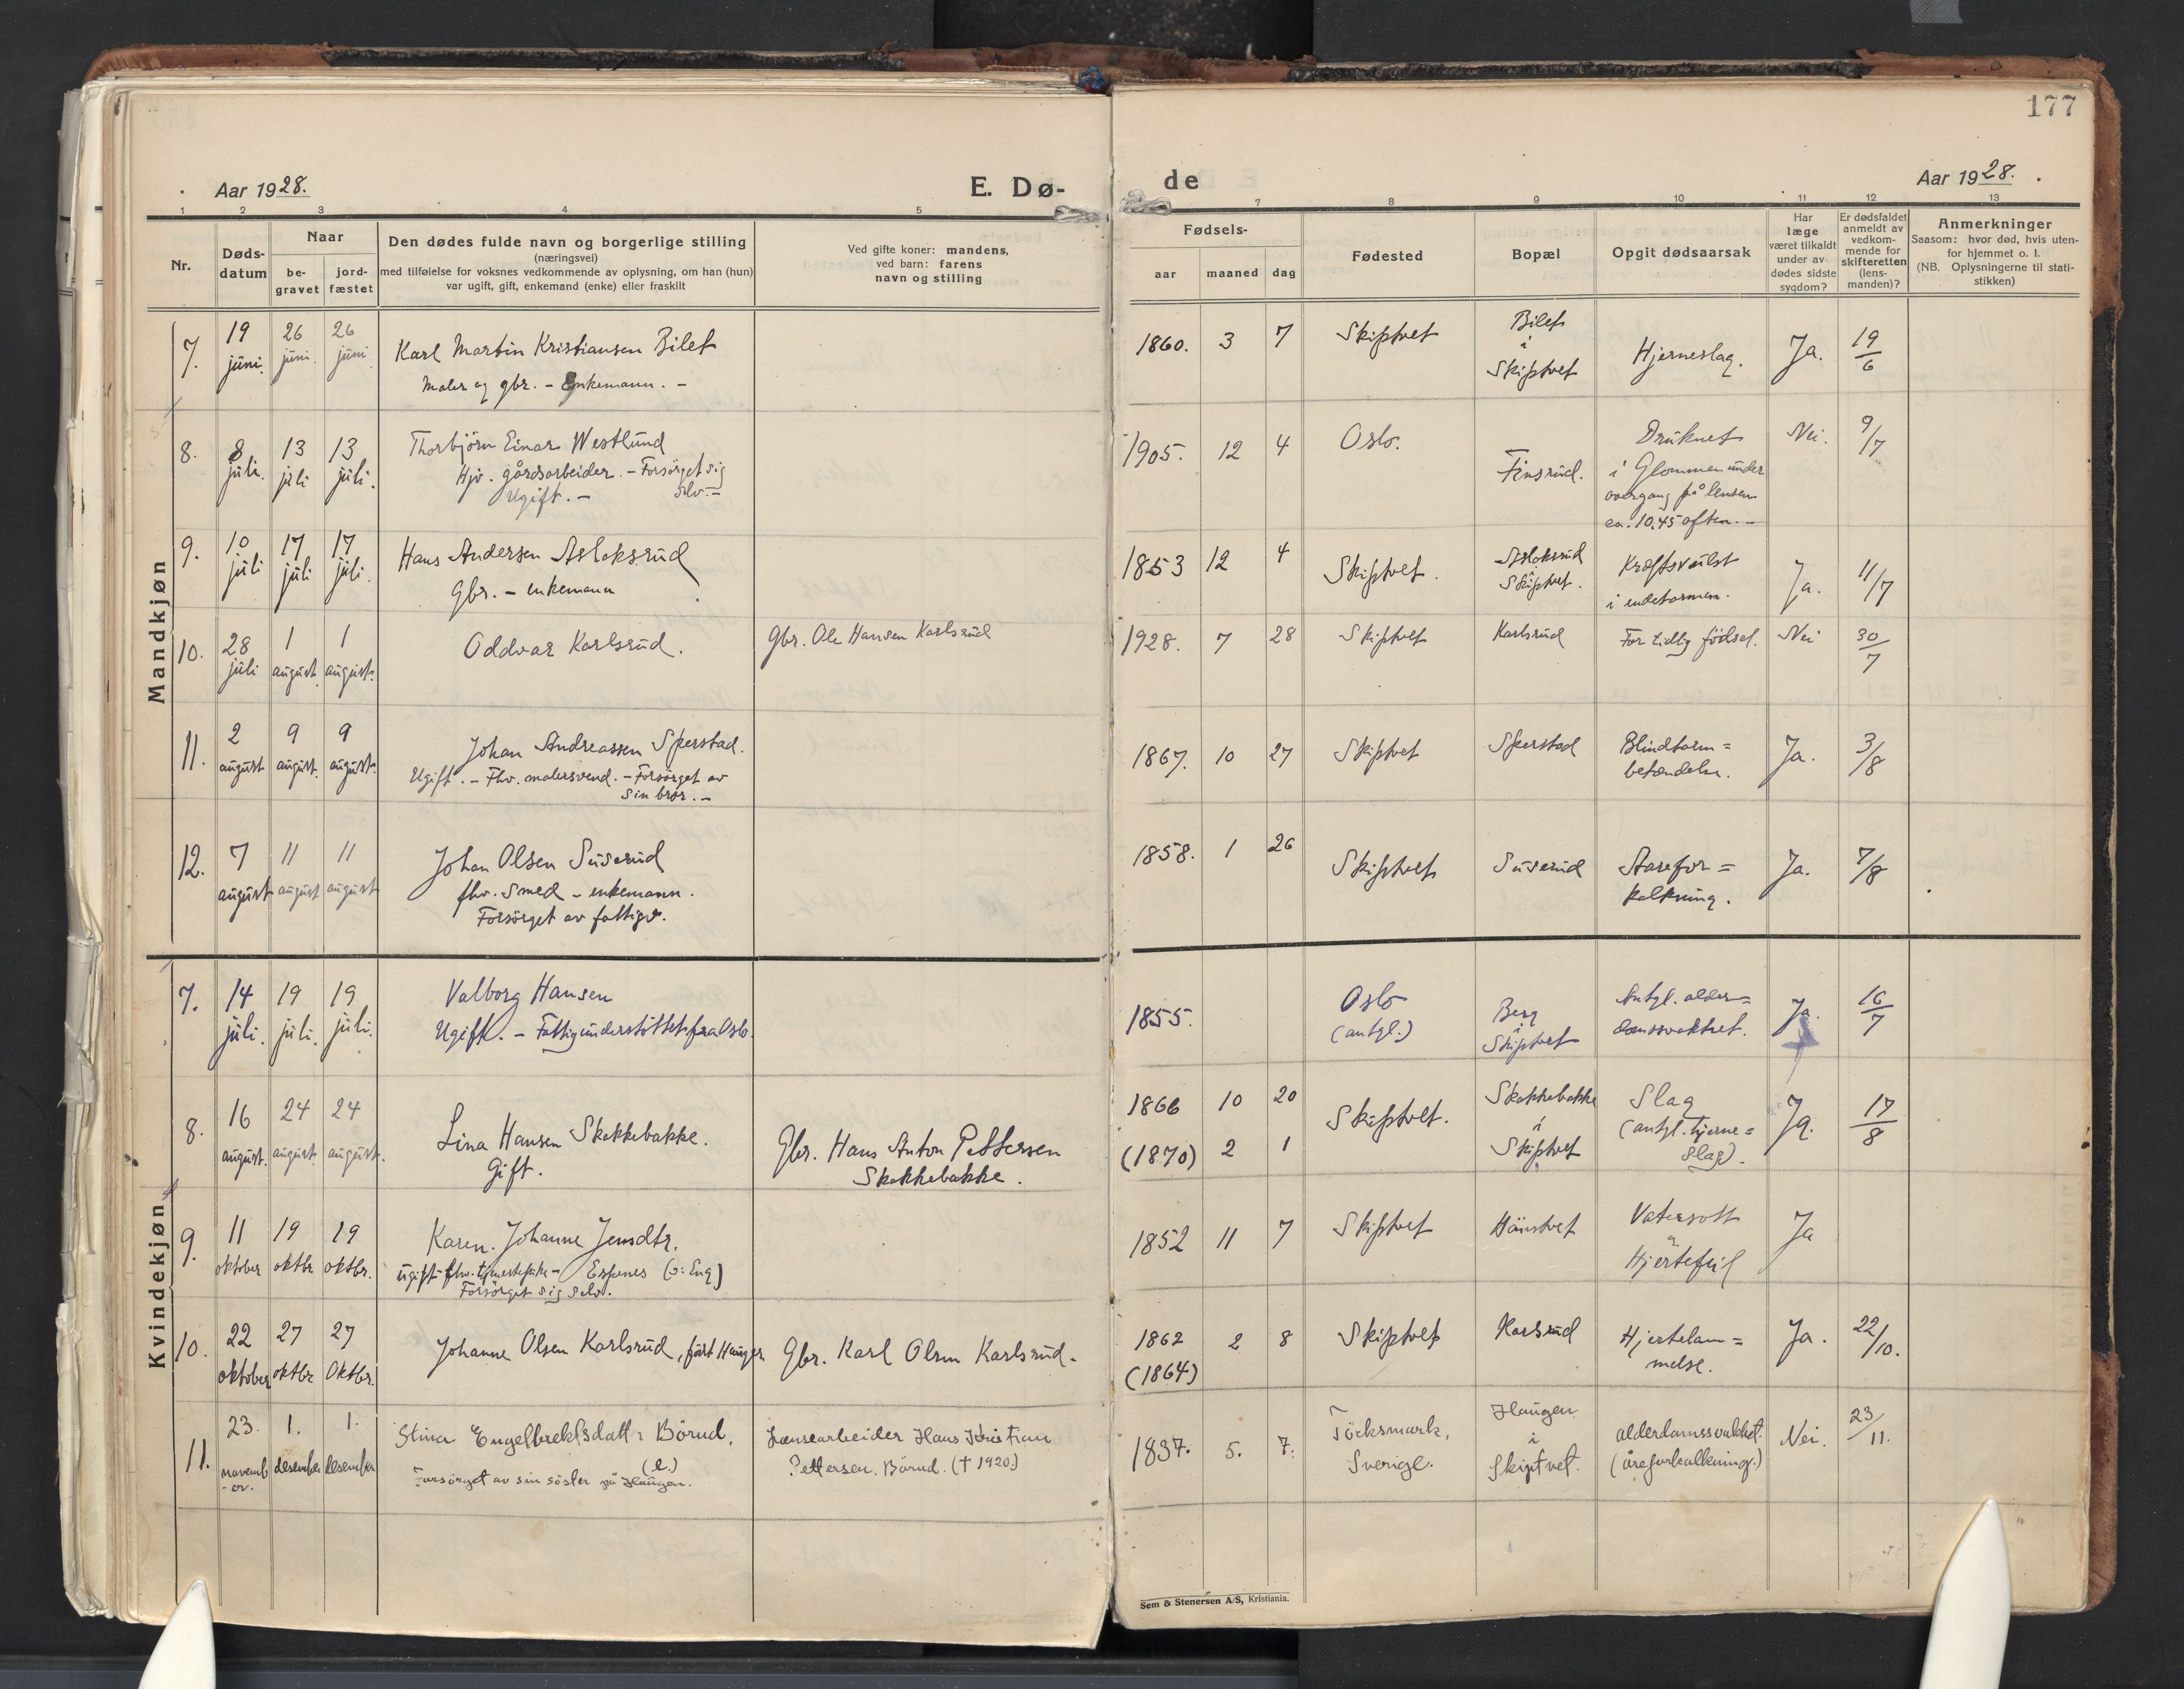 177
Aar 1928.
E. Dø-
de
Aar 1928.
1 2 3 4 5 7 8 9 10 11 12 13
Nr.
Døds-
datum
Naar
be-
gravet
jord-
fæstet
Den dødes fulde navn og borgerlige stilling
(næringsvei)
med tilføielse for voksnes vedkommende av oplysning, om han (hun)
var ugift, gift, enkemand (enke) eller fraskilt
Ved gifte koner: mandens,
ved barn: farens
navn og stilling
Fødsels-
aar maaned dag
Fødested
Bopæl
Opgit dødsaarsak
Har
læge
været tilkaldt
under av-
dødes sidste
sygdom?
Er dødsfaldet
anmeldt av
vedkom-
mende for
skifteretten
(lens-
manden)?
Anmerkninger
Saasom: hvor død, hvis uten-
for hjemmet o. l.
(NB. Oplysningerne til stati-
stikken)
Mandkjøn
7. 19 juni. 26 juni. 26 juni
Karl Martin Kristiansen Bilet
Maler og gbr. - Enkemann. -
1860. 3 7 Skiptvet
Bilet
i
Skiptvet
Hjerneslag. Ja. 19/6
8. 8 juli. 13 juli 13 juli.
Thorbjörn Einar Westlund
Hjv. gårdsarbeider. - Forsörget sig
Ugift. - selv. -
1905. 12 4 Oslo.
Finsrud.
Druknet
i Glommen under
overgang på lensen
ca. 10.45 aften. -
Nei. 9/7
9. 10 juli 17 juli 17 juli.
Hans Andersen Asloksrud
Gbr. - enkemann
1853 12 4 Skiptvet.
Asloksrud
i
Skiptvet.
Kræftsvulst
i endetarmen.
Ja. 11/7
10. 28 juli 1 august. 1 august.
Oddvar Karlsrud.
Gbr. Ole Hansen Karlsrud
1928. 7 28 Skiptvet Karlsrud For tidlig födsel. Nei 30/7
11. 2 august 9 august. 9 august.
Johan Andreassen Sperstad.
Ugift. - Fhv. malersvend. - Forsörget av
sin bror. -
1867. 10 27 Skiptvet Sperstad
Blindtarm=
betændelse.
Ja. 3/8
12. 7 august 11 august 11 august
Johan Olsen Suserud
fhv. smed - enkemann.
Forsörget av fattigv.
1858. 1 26 Skiptvet Suserud
Aarefor=
kalkning.
Ja. 7/8
Kvindekjøn
7. 14 juli. 19 juli. 19 juli.
Valborg Hansen
Ugift. - Fattigunderstöttet fra Oslo.
1855.
Oslo
(antgl.)
Berg
i
Skiptvet
Antgl. alder=
domssvakhet.
Ja. 16/7
8. 16 august. 24 august. 24 august.
Lina Hansen Skakkebakke.
Gift.
Gbr. Hans Anton Pettersen
Skakkebakke.
1866 10 20
(1870) 2 1
Skiptvet.
Skakkebakke
i
Skiptvet
Slag
(antgl. hjerne=
slag).
Ja. 17/8
9. 11 oktober 19 oktbr 19 oktbr.
Karen Johanne Jensdtr.
Ugift - fhv. tjenestepike - Espenes (o: Eng)
Forsörget sig selv.
1852 11 7 Skiptvet
Vatersott
og
Hjertefeil
Ja
10. 22 oktober 27 oktbr 27 Oktbr.
Johanne Olsen Karlsrud, født Haugen
Gbr. Karl Olsen Karlsrud.
1862 2 8
(1864)
Skiptvet Karlsrud
Hjertelam=
melse.
Ja. 22/10.
11. 23. novemb-er. 1. desember 1. desember
Stina Engelbrektsdatt. Börud,
(e.)
Forsörget av sin söster på Haugen.
Lensearbeider Hans Kristian
Pettersen Börud. († 1920)
1837. 5. 7.
Töcksmark,
Sverige.
Haugen
i
Skiptvet.
alderdomssvakhet.
(åreforkalkning.)
Nei. 23/11.
Sem & Stenersen A/S, Kristiania.